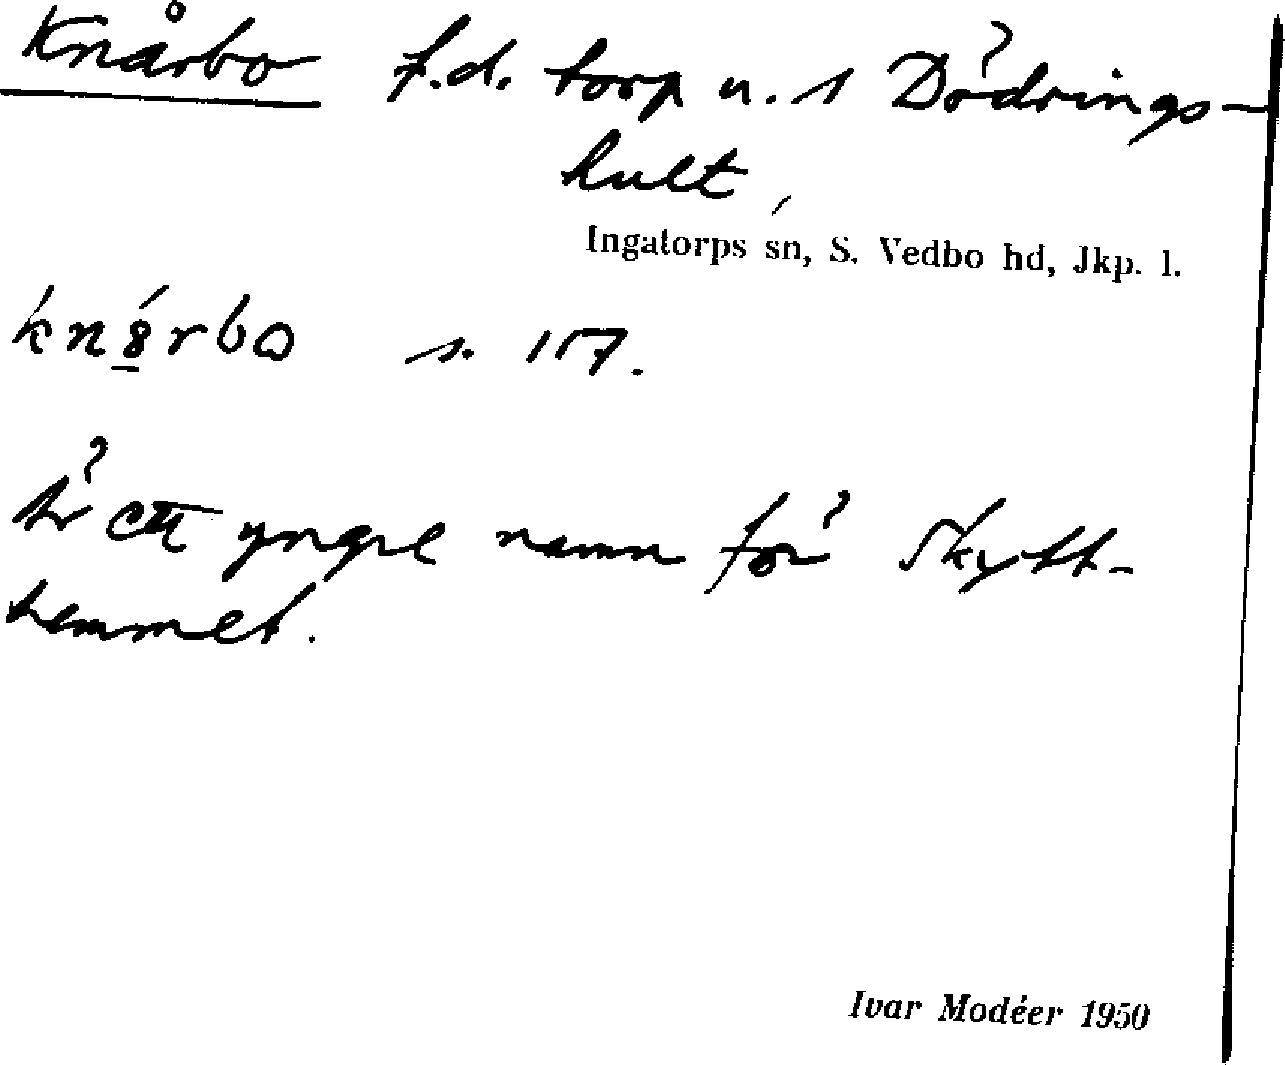 Knårbo f.d. torp u. s Dödrings-
hult,
Ingatorps sn, S. Vedbo hd, Jkp. l.
s. 117.
Är ett yngre namn för Skytt-
hemmet.
Ivar Modéer 1950